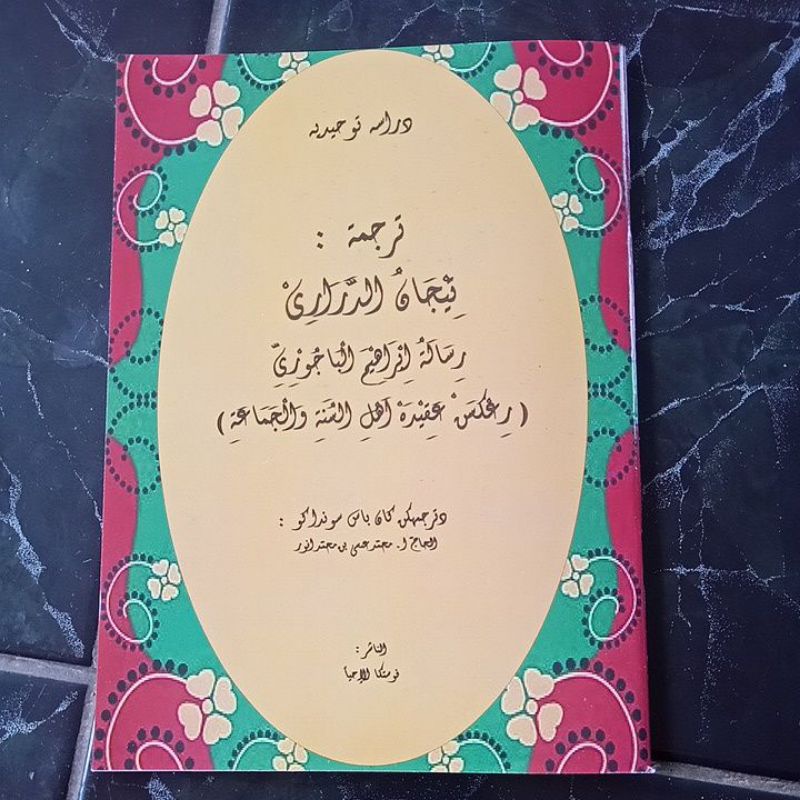 دراسه توحيديه
ترجمة :
تِيْجَانُ الدَّرَارِيْ
رِسَالَةُ اِبْرَاهِيْمَ الْبَاجُوْرِيِّ
( رِڠْكَسْ عَقِيْدَةْ اَهْلِ السُّنَّةِ وَالْجَمَاعَةِ )
دترجمهكن كان باس سونداكو :
الحاج ا. محمد بن محمد انور
الناشر :
فوستكا الإحيأ